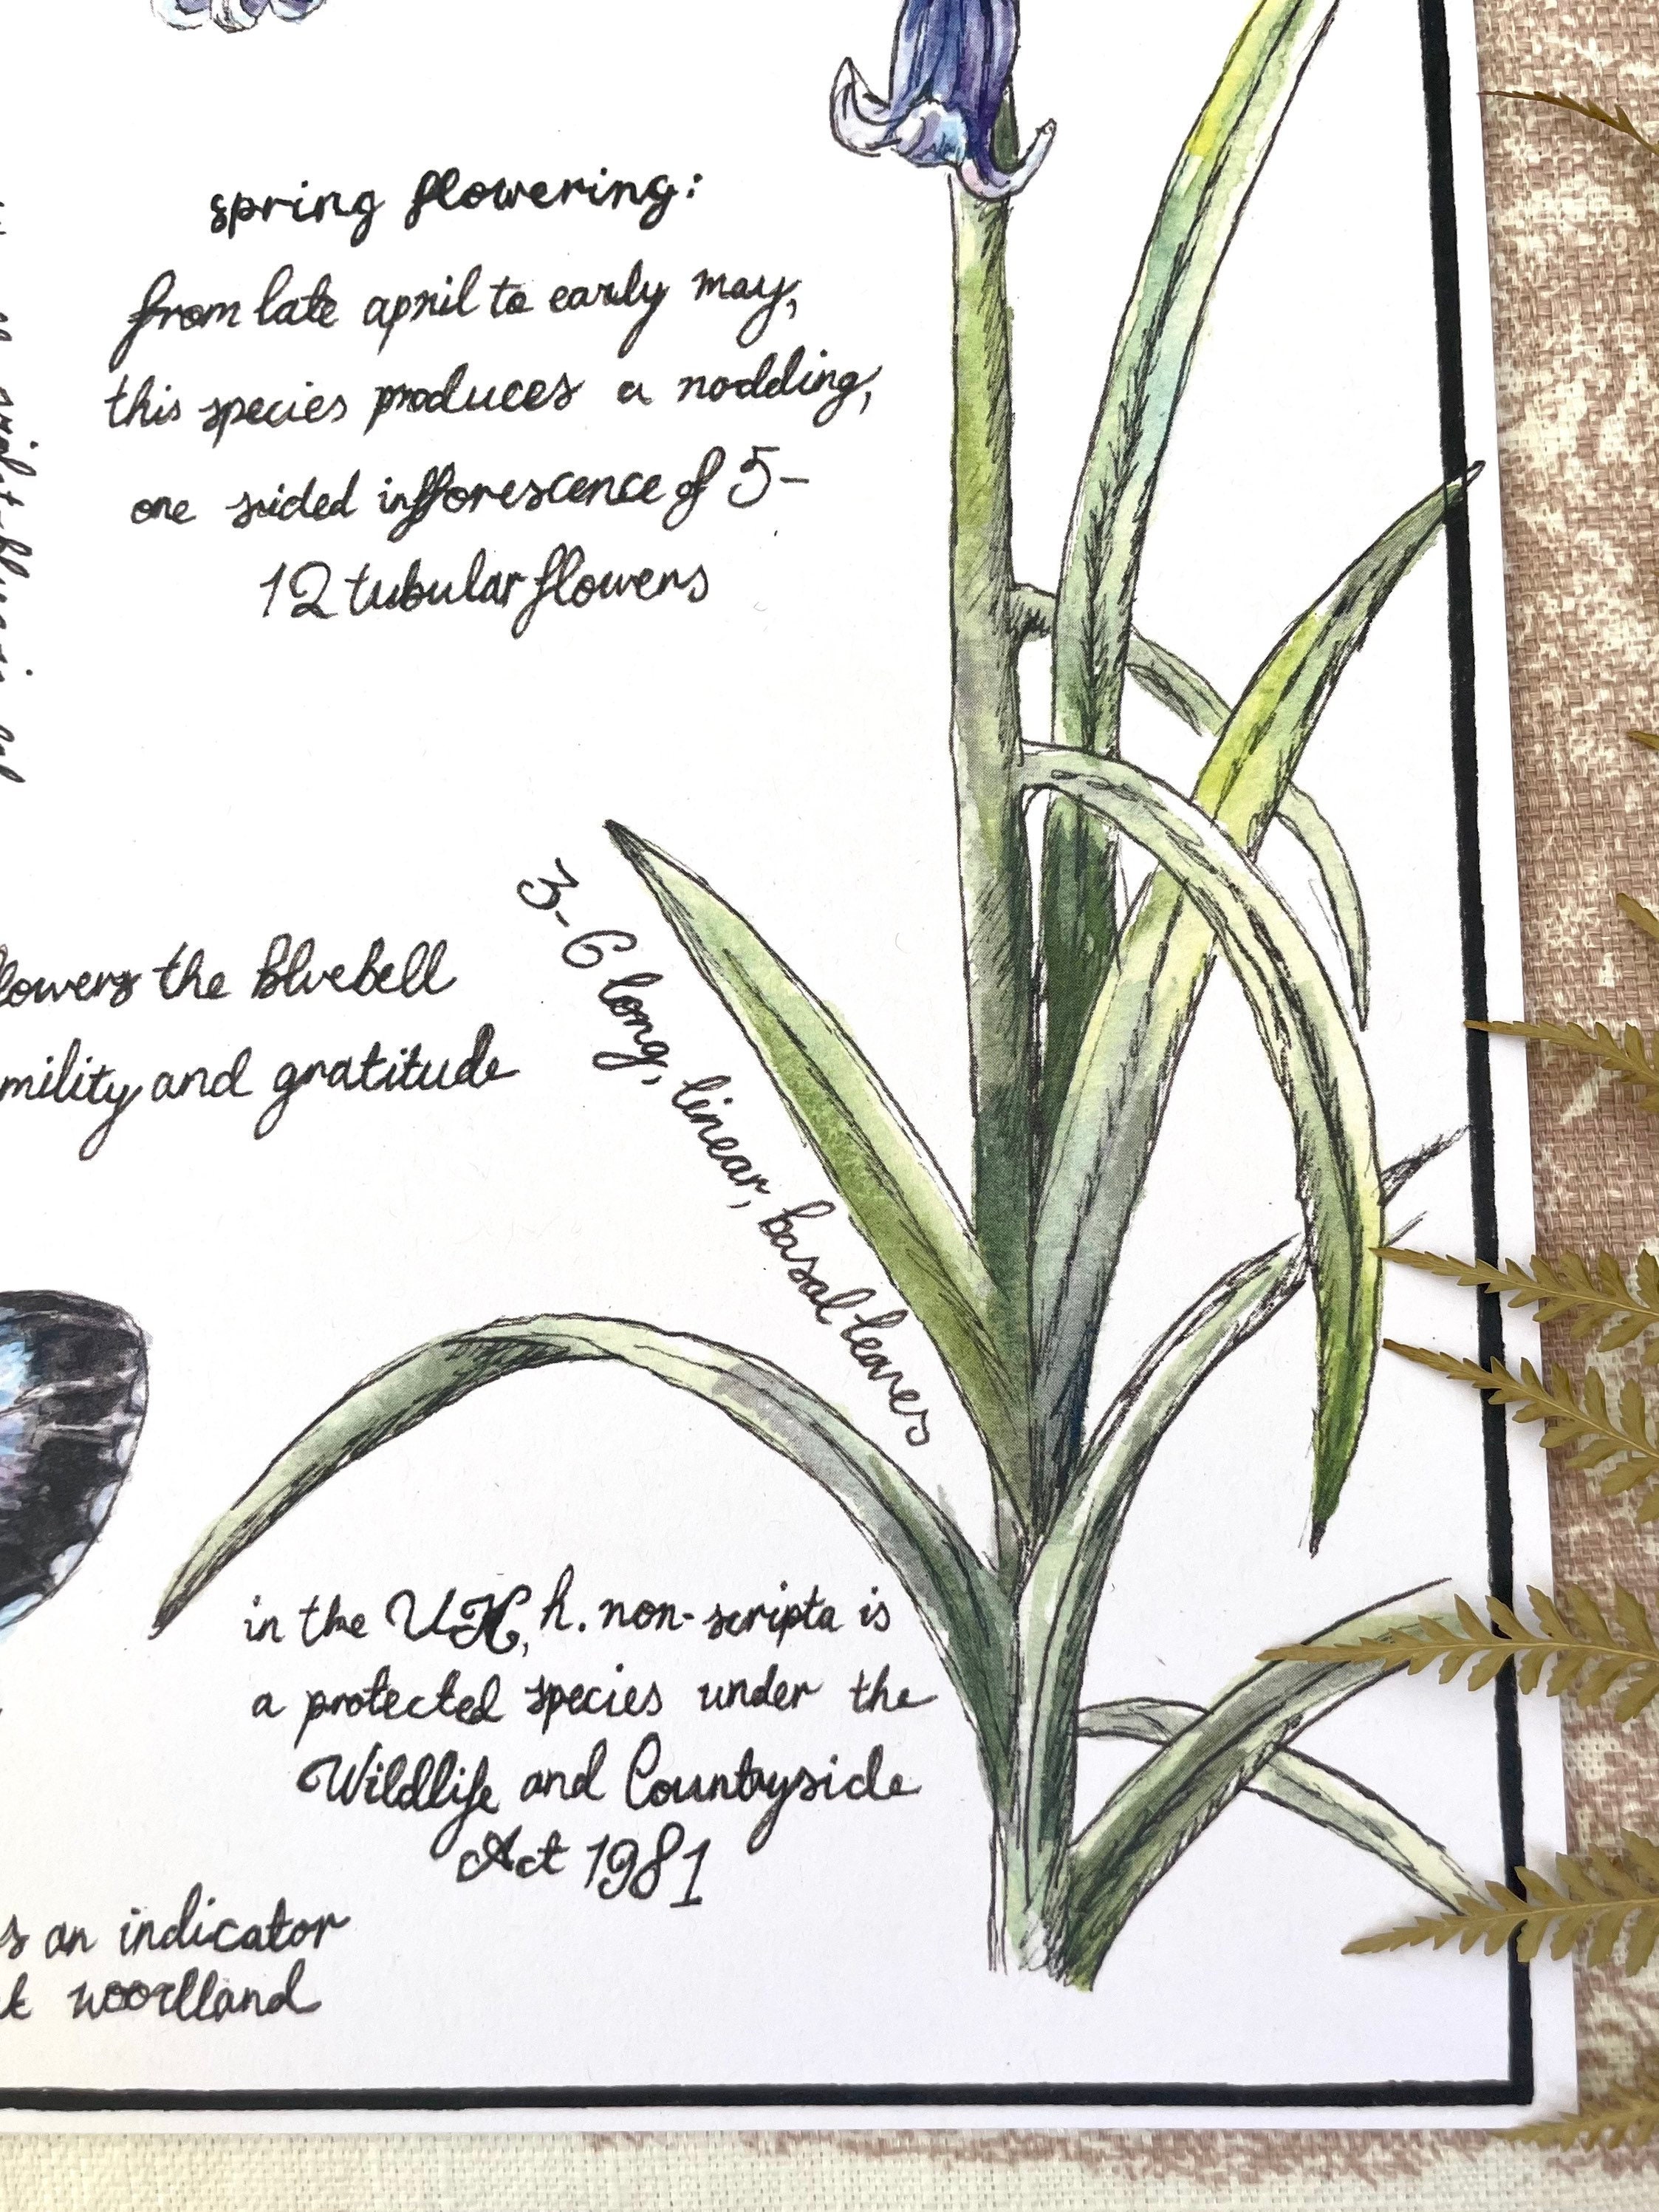 spring flowering:
from late april to early may,
this species produces a nodding,
one sided infforescence of 5-
12 tubular flowers
3-6 long, linear, basal leaves
lowers the bluebell
mility and gratitude
in the UK, h. non-scripta is
a protected species under the
Wildlife and Countryside
Act 1981
s an indicator
woodland